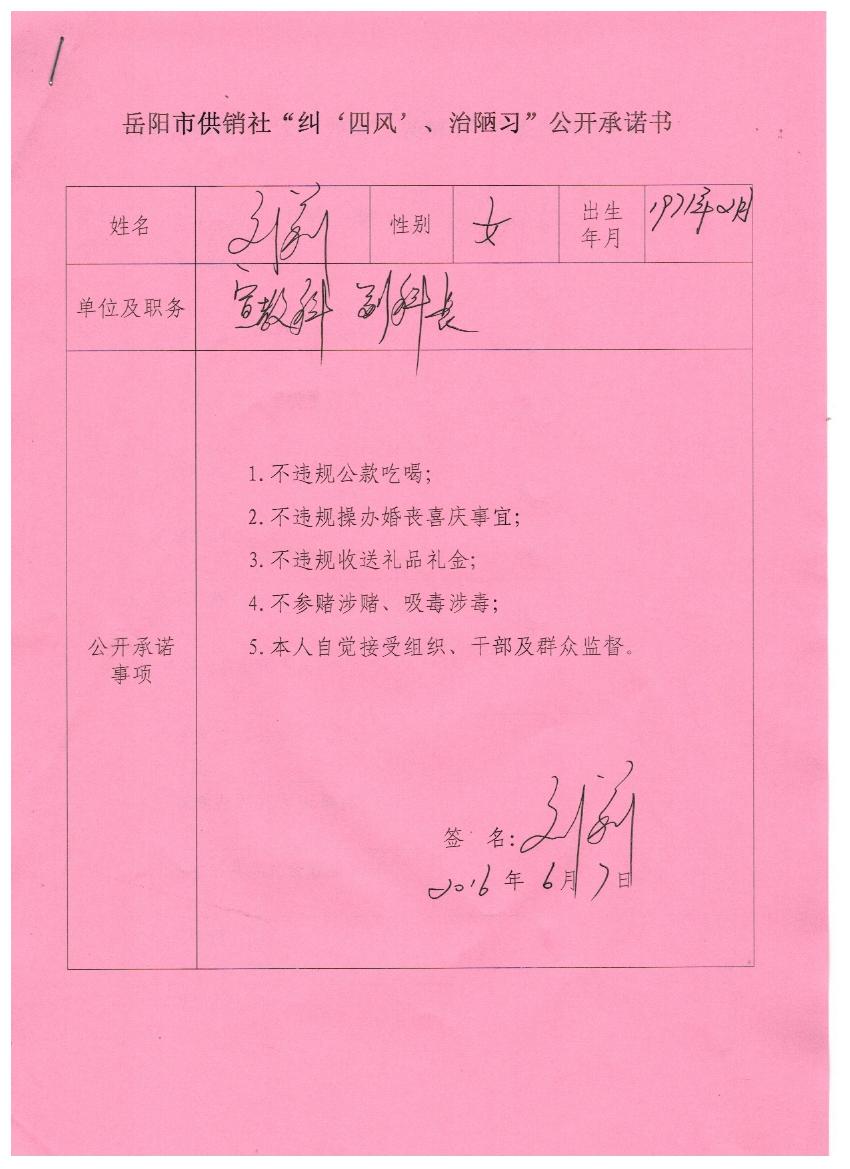 岳阳市供销社“纠‘四风’、治陋习”公开承诺书
姓名 刘莉 性别 女 出生年月 1971年2月
单位及职务 宣教科 副科长
公开承诺事项
1.不违规公款吃喝;
2.不违规操办婚丧喜庆事宜;
3.不违规收送礼品礼金;
4.不参赌涉赌、吸毒涉毒;
5.本人自觉接受组织、干部及群众监督。
签 名:刘莉
2016年6月7日